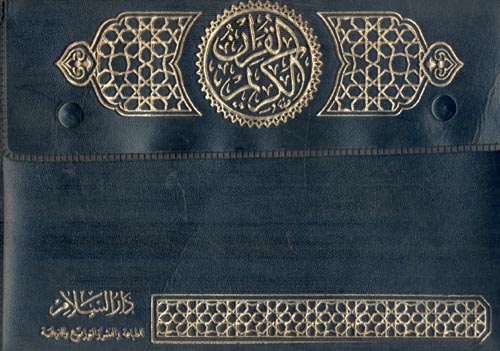 القرآن الكريم
دار السلام
للطباعة والنشر والتوزيع والترجمة